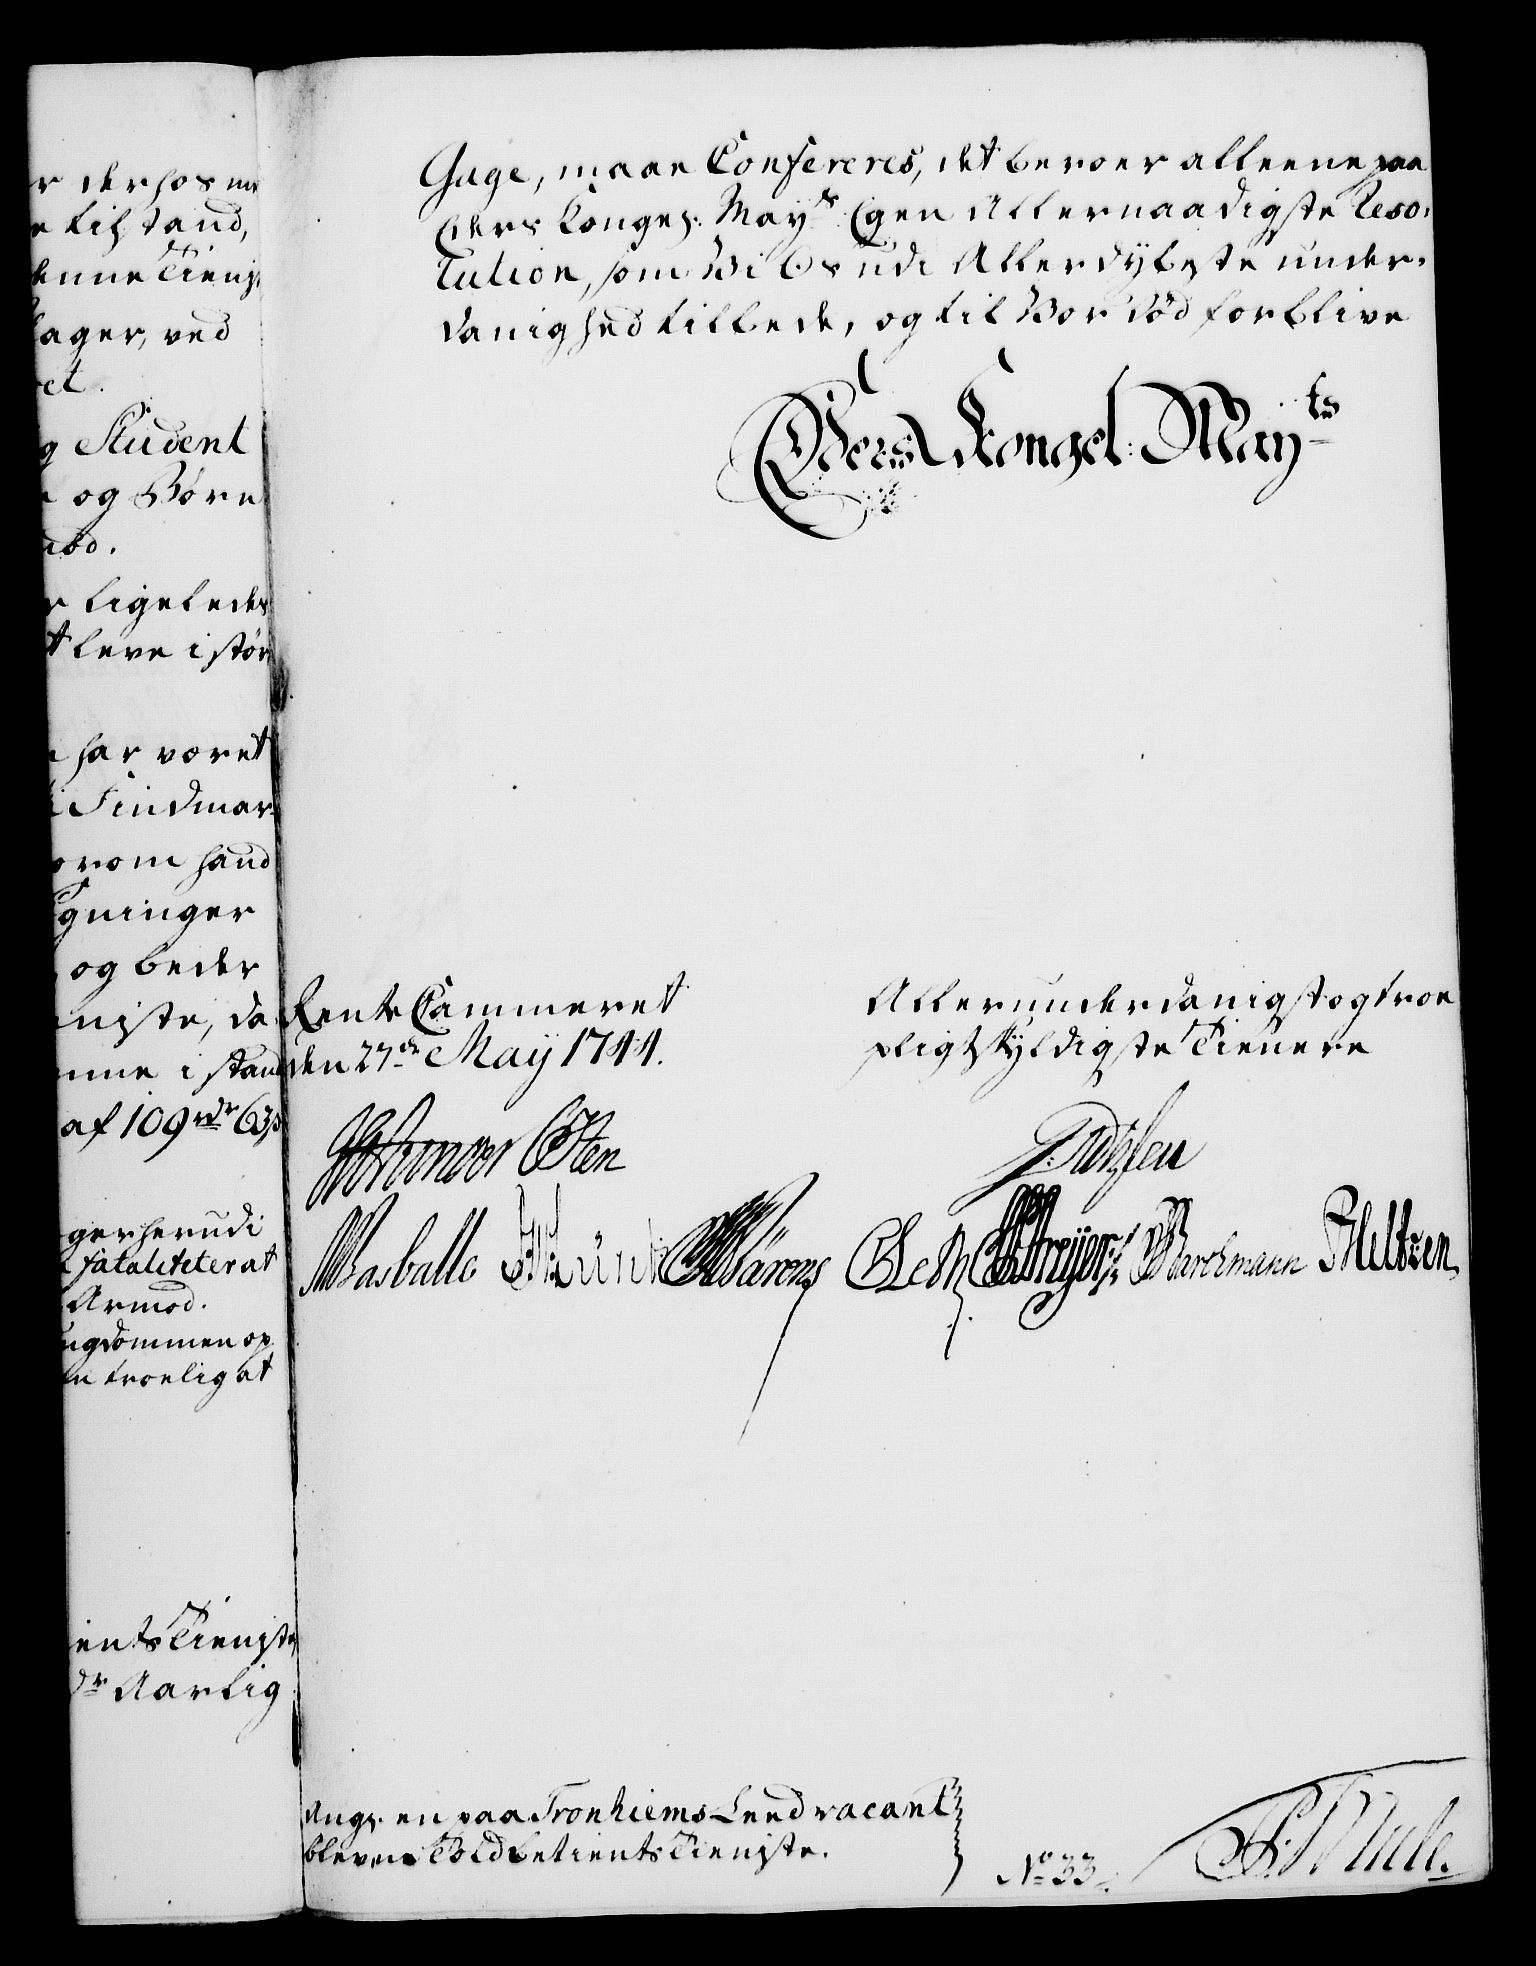 r derhos me
e tilstand,
denne Tienist
tager, ved
et.
g Student
og Børn
mod.
r ligeledes
t leve i stør
har været
i Findmar-
orom hand
gninger
og beder
niste, da
nne i stand
af 109 rdr 63 s
ger herudi
fataliteter at
Armod.
ungdommen op
n troelig at
ients Tieniste,
dr Aarlig
Gage, maae Confereres, det beroer alleene paa
Eders Kongel: Mayts Egen Allernaadigste Reso-
lution, som Vi Os udi Allerdybeste under-
danighed tilbede, og til Vor Død forblive
Eders Kongel: Mayts
Rente Cammeret
den 27de Maÿ 1744.
Allerunderdanigst og troe
pligtskyldigste Tienere
Osten
Masballe
Bärens
Barchmann
Meltzen
Ang: en paa Tronhiems Leed vacant
bleven Toldbetients Tieniste.
No 33